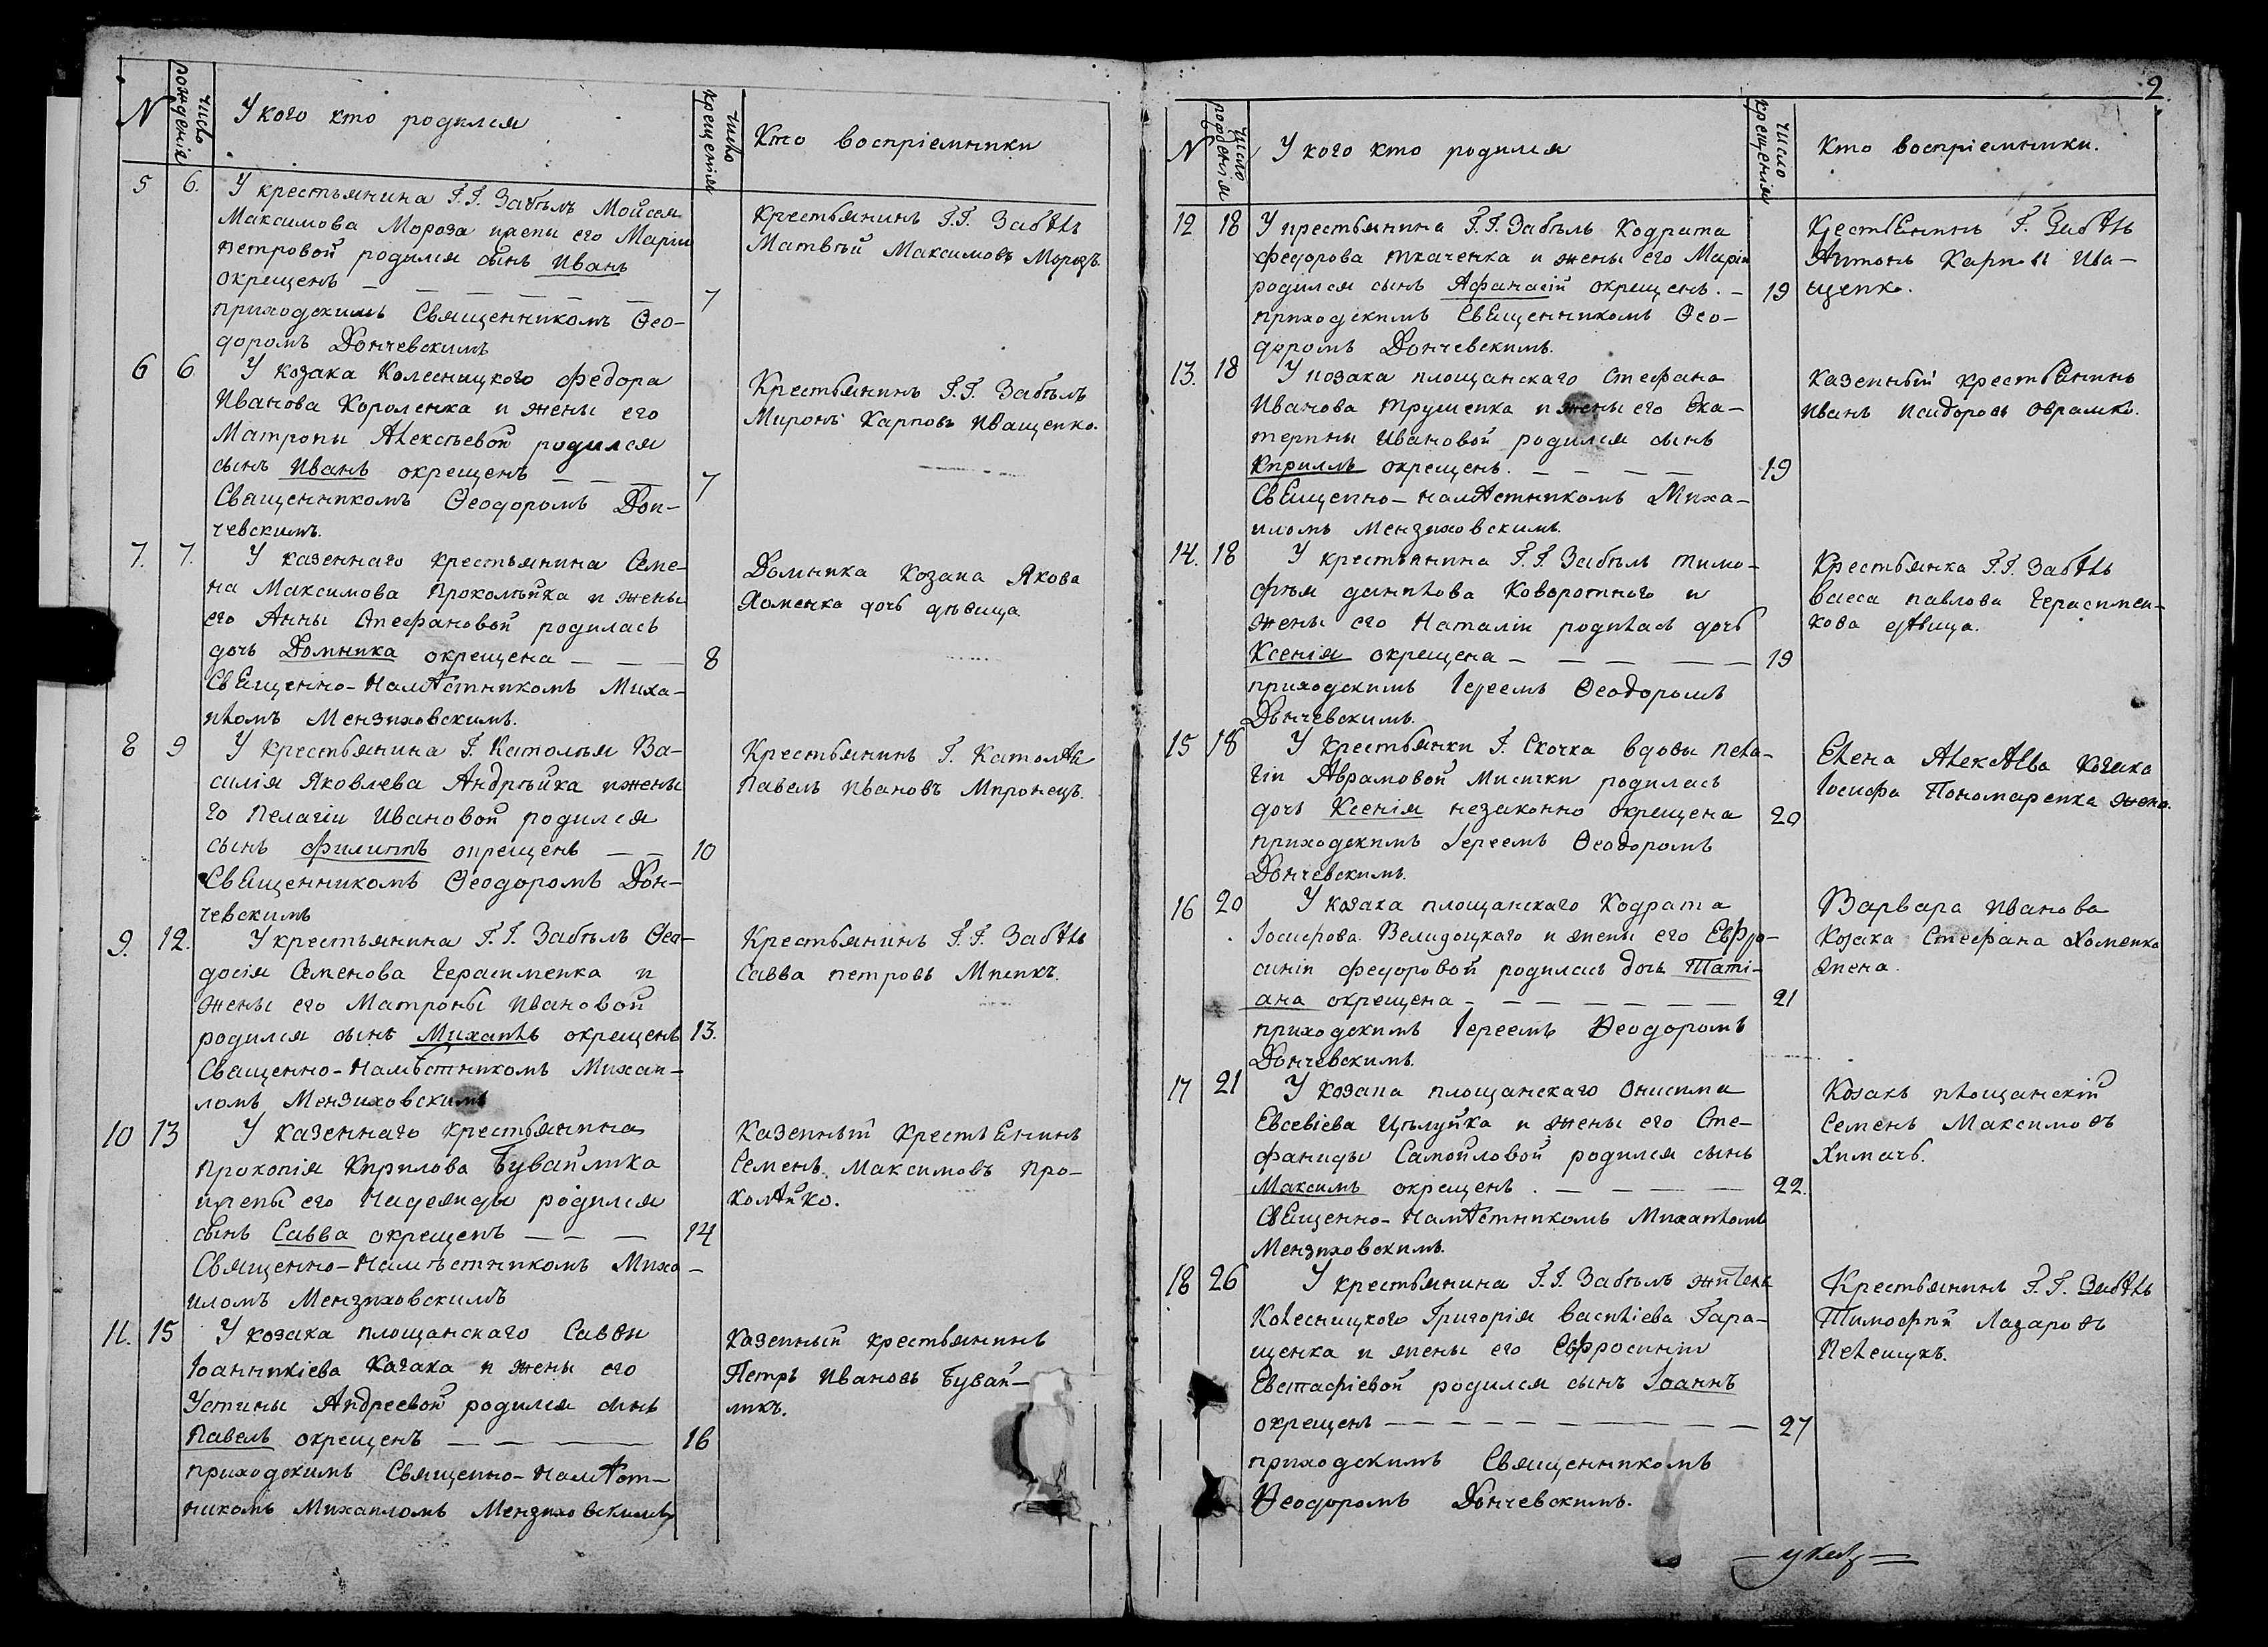 N
число рожденія
У кого кто родился
число крещенія
Кто воспріемники
5 6. У крестьянина Г.Г. Забѣлъ Мойсея
Максимова Мороза и жены его Маріи
петровой родился сынъ Иванъ
окрещенъ — — — — — — 7
приходскимъ Священникомъ Ѳео-
доромъ Дончевскимъ
Крестьянинъ Г.Г. Забѣлъ
Матвѣй Максимовъ Морозъ.
6 6. У козака Колесницкого федора
Иванова Короленка и жены его
Матроны Алексѣевой родился
сынъ Иванъ окрещенъ — — — 7
Священникомъ Ѳеодоромъ Дон-
чевскимъ.
Крестьянинъ Г.Г. Забѣлъ
Миронъ Карповъ Иващенко.
7. 7. У казеннаго крестьянина Семе-
на Максимова Прокопѣйка и жены
его Анны Стефановой родилась
дочь Домника окрещена — — — 8
Священно-Намѣстникомъ Миха-
иломъ Мензиховскимъ.
Домника Козака Якова
Хоменка дочь дѣвица
8 9 У крестьянина Г. Католѣя Ва-
силія Яковлева Андрѣйка и жены
го Пелагіи Ивановой родился
сынъ филиппъ окрещенъ — — 10
Священникомъ Ѳеодоромъ Дон-
чевскимъ
Крестьянинъ Г. Католѣя
Павелъ Ивановъ Миронецъ.
9. 12. У крестьянина Г.Г. Забѣлъ Ѳео-
досія Семенова Герасименка и
жены его Матроны Ивановой
родился сынъ Михаилъ окрещенъ 13.
Священно-Намѣстникомъ Михаи-
ломъ Мензиховскимъ
Крестьянинъ Г.Г. Забѣлъ
Савва петровъ Миникъ.
10 13 У казеннаго крестьянина
Прокопія Кирилова Бувайлика
и жены его Надежды родился
сынъ Савва окрещенъ — — — 14
Священно-Намѣстникомъ Миха-
иломъ Мензиховскимъ
Казенный крестьянинъ
Семенъ Максимовъ Про-
копѣйко.
11. 15 У козака площанскаго Саввы
Іоанникіева Качака и жены его
Устины Андреевой родился сынъ
Павелъ окрещенъ — — — 16
приходскимъ Священно-Намѣст-
никомъ Михаиломъ Мензиховскимъ
Казенный крестьянинъ
Петръ Ивановъ Бувай-
ликъ.
2.
N
число рожденія
У кого кто родился
число крещенія
Кто воспріемники.
12 18 У крестьянина Г.Г. Забѣлъ Кодрата
федорова ткаченка и жены его Маріи
родился сынъ Афанасій окрещенъ. — 19
приходскимъ Священникомъ Ѳео-
доромъ Дончевскимъ.
Крестьянинъ Г. Забѣлъ
Антонъ Карповъ Ива-
щенко.
13. 18 У козака площанскаго Стефана
Иванова Трушенка и жены его Ека-
терины Ивановой родился сынъ
Кириллъ окрещенъ. — — — — 19
Священно-намѣстникомъ Миха-
иломъ Мензиховскимъ.
казенный крестьянинъ
Иванъ Исидоровъ Оврамко.
14. 18 У крестьянина Г.Г. Забѣлъ Тимо-
фѣя данилова Коворотного и
жены его Наталіи родилась дочь
Ксенія окрещена — — — — — 19
приходскимъ Іереемъ Ѳеодоромъ
Дончевскимъ.
Крестьянка Г.Г. Забѣлъ
Васса павлова Герасимен-
кова дѣвица.
15 18 У крестьянки Г. Скочка вдовы Пела-
гіи Аврамовой Мисички родилась
дочь Ксенія незаконно окрещена 20
приходскимъ Іереемъ Ѳеодоромъ
Дончевскимъ.
Елена Алексѣева козака
Іосифа Пономаренка жена.
16 20 У козака площанскаго Кодрата
Іосифова Велидоцкаго и жены его Евфро-
синіи федоровой родилась дочь Таті-
ана окрещена — — — — — — — 21
приходскимъ Іереемъ Ѳеодоромъ
Дончевскимъ.
Варвара Иванова
Козака Стефана Хоменка
жена.
17 21 У козака площанскаго Онисима
Евсевіева Цѣлуйка и жены его Сте-
фаниды Самойловой родился сынъ
Максимъ окрещенъ. — — — — 22.
Священно-Намѣстникомъ Михаиломъ
Мензиховскимъ.
Козакъ площанскій
Семенъ Максимовъ
Химачъ.
18 26 У крестьянина Г.Г. Забѣлъ жителя
Колесницкого Григорія Василіева Гара-
щенка и жены его Евфросиніи
Евстафіевой родился сынъ Іоаннъ
окрещенъ — — — — — — — — — 27
приходскимъ Священникомъ
Ѳеодоромъ Дончевскимъ.
Крестьянинъ Г.Г. Забѣлъ
Тимофѣй Лазаровъ
Пелещукъ.